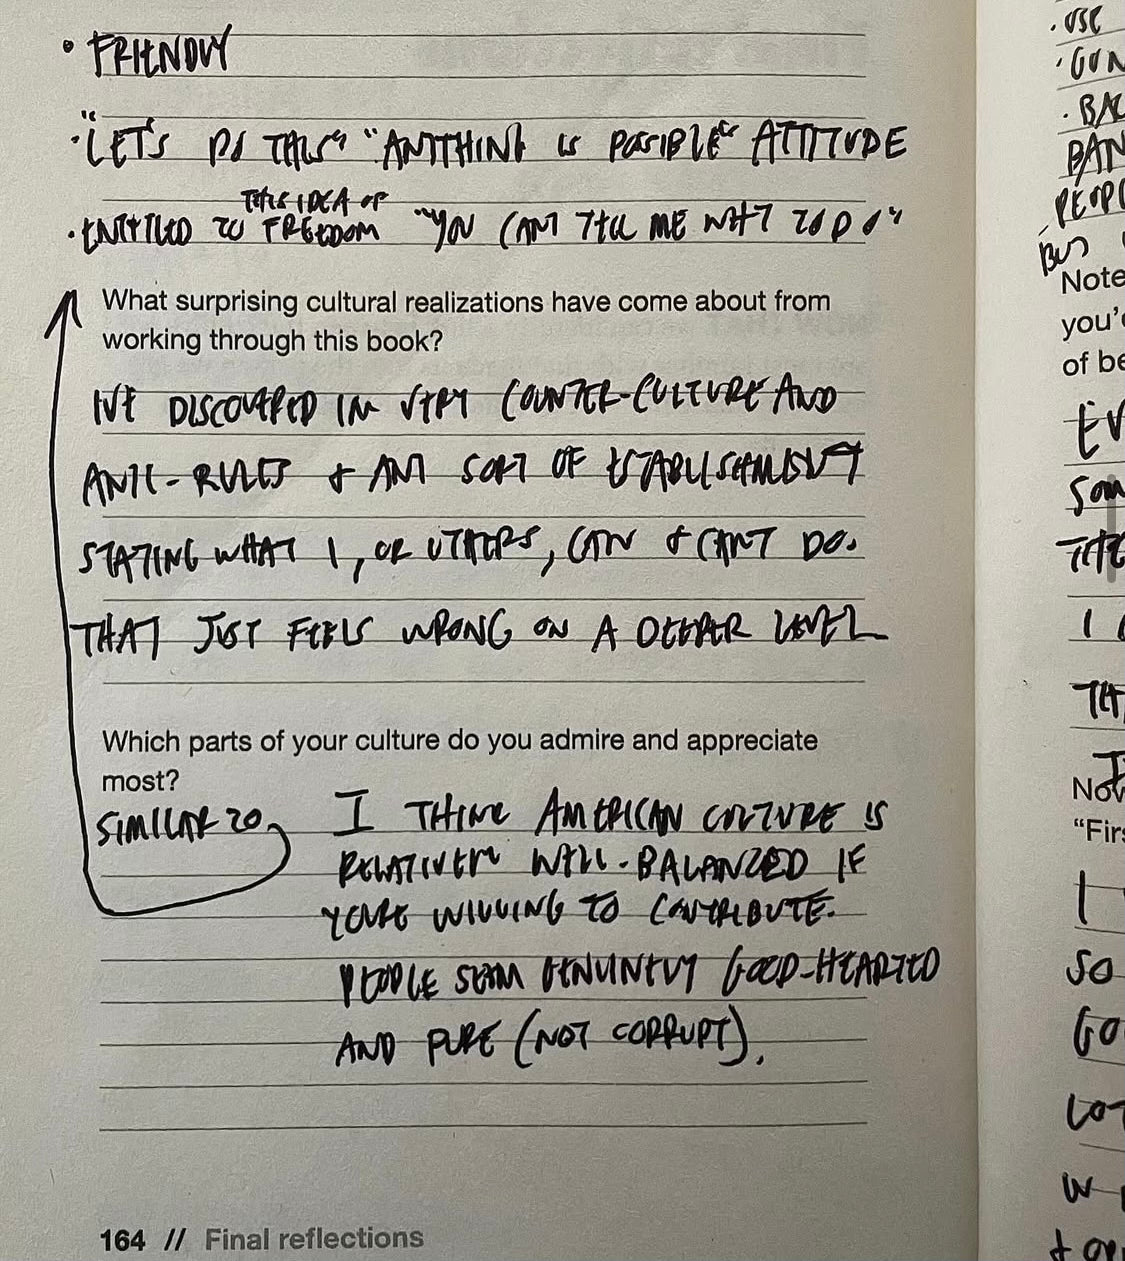 • FRIENDLY
• "LET'S DO THIS" "ANYTHING IS POSSIBLE" ATTITUDE
THIS IDEA OF
• ENTITLED TO FREEDOM "YOU CAN'T TELL ME WHAT TO DO"
What surprising cultural realizations have come about from
working through this book?
I'VE DISCOVERED I'M VERY COUNTER-CULTURE AND
ANTI-RULES & ANY SORT OF ESTABLISHMENT
STATING WHAT I, OR OTHERS, CAN & CAN'T DO.
THAT JUST FEELS WRONG ON A DEEPER LEVEL
Which parts of your culture do you admire and appreciate
most?
SIMILAR TO
I THINK AMERICAN CULTURE IS
RELATIVELY WELL-BALANCED IF
YOU'RE WILLING TO CONTRIBUTE.
PEOPLE SEEM GENUINELY GOOD-HEARTED
AND PURE (NOT CORRUPT).
164 // Final reflections
• USE
Note
you'
of be
SO